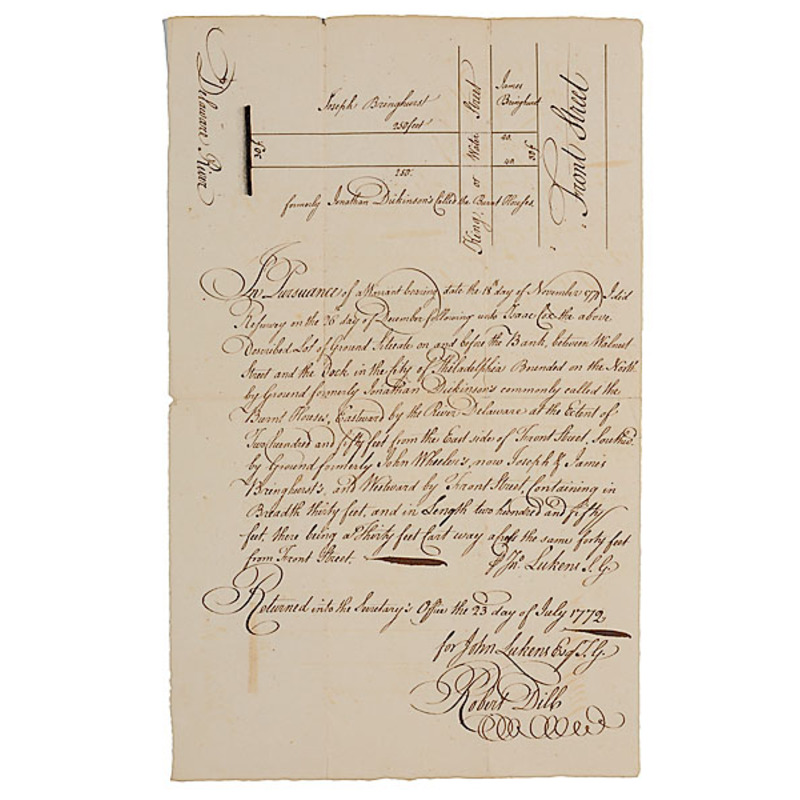 Delaware River
Joseph Bringhurst
250 feet
30f
250
formerly Jonathan Dickinson's Called the Burnt Houses.
King or Water Street
James
Bringhurst
40.
40
30f
Front Street
In Pursuance of a Warrant bearing date the 18th day of November I did
Resurvey on the 26th day of December following unto Isaac Cox the above
Described Lot of Ground Situate on and before the Bank, between Walnut
Street and the Dock in the City of Philadelphia Bounded on the North
by Ground formerly Jonathan Dickinson's commonly called the
Burnt Houses, Eastward by the River Delaware at the Extent of
Two hundred and fifty feet from the East side of Front Street, Southwd.
by Ground formerly John Wheeler's, now Joseph & James
Bringhurst's, and Westward by Front Street, Containing in
Breadth thirty feet, and in Length two hundred and fifty
feet, there being a Thirty feet Cart way across the same forty feet
from Front Street. Jno. Lukens S.G.
Returned into the Secretary's Office the 23 day of July 1772
for John Lukens Esqr. S.G.
Robert Dill